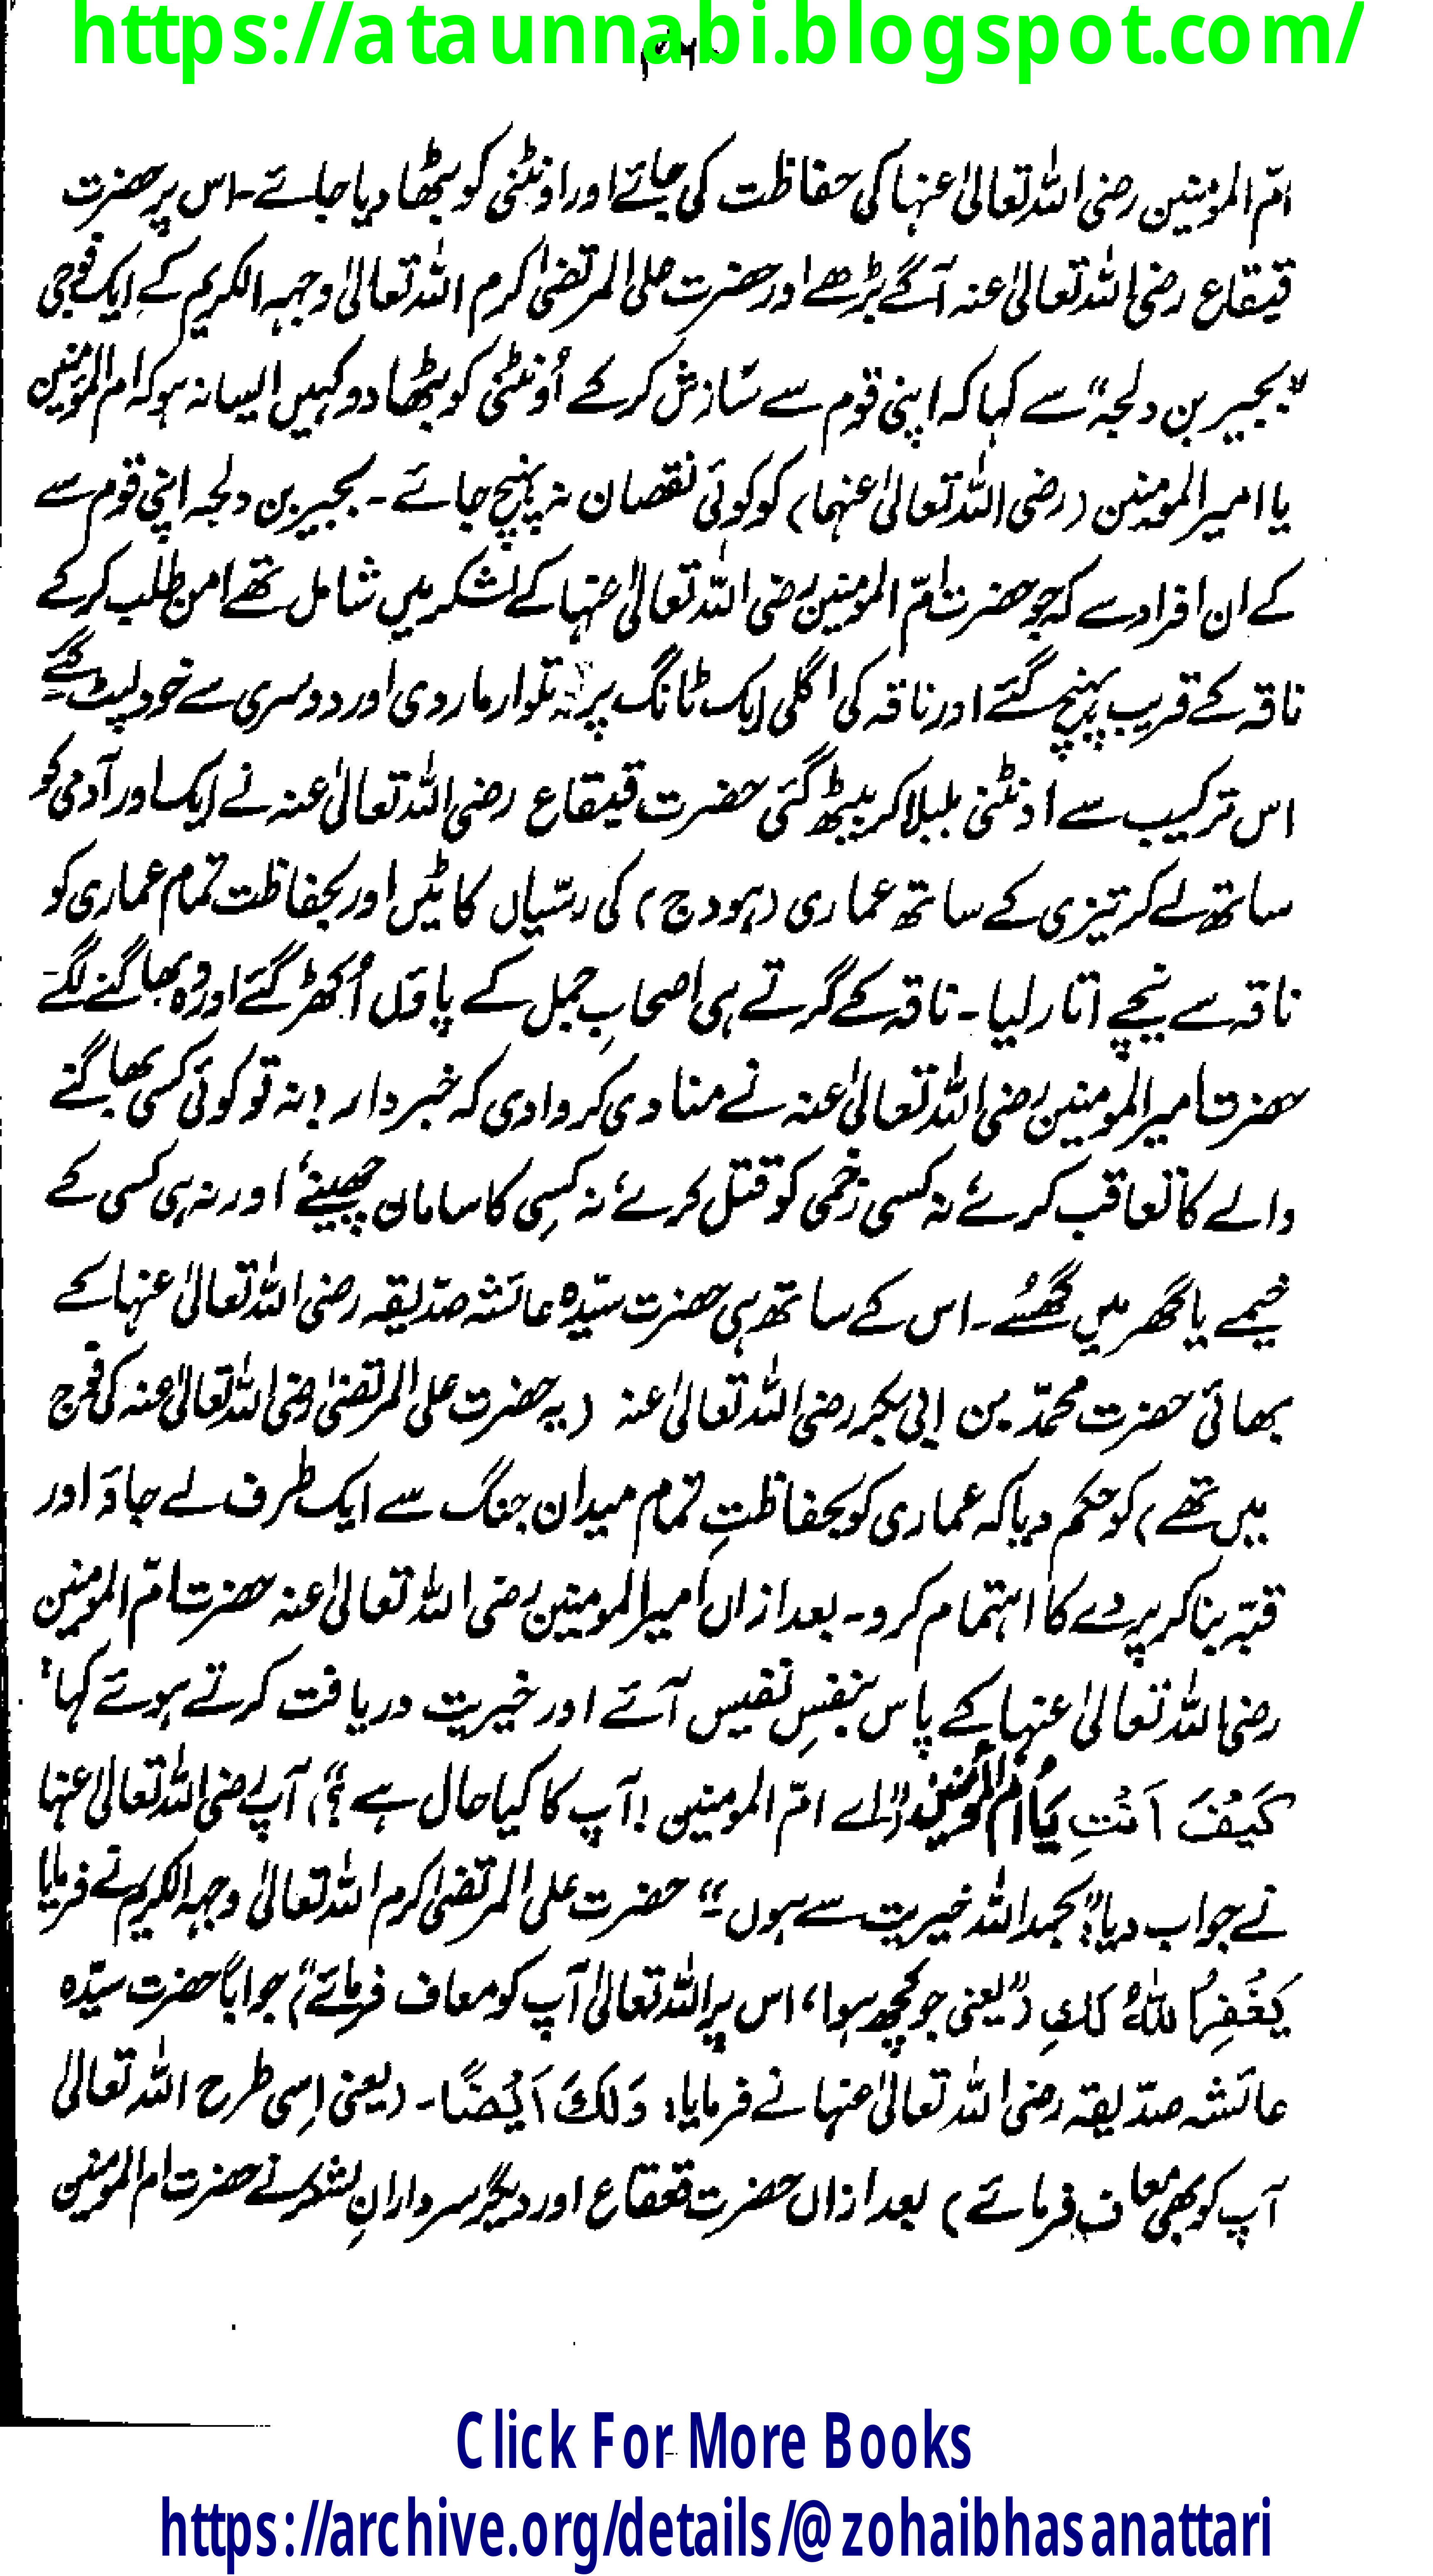 https://ataunnabi.blogspot.com/
امّ المؤمنین رضی اللہ تعالیٰ عنہا کی حفاظت کی جائے اور اونٹنی کو بٹھا دیا جائے۔ اس پر حضرت
قیقاع رضی اللہ تعالیٰ عنہ آگے بڑھے اور حضرت علی المرتضیٰ کرم اللہ تعالیٰ وجہہ الکریم کے ایک فوجی
”بجیر بن دلجہ“ سے کہا کہ اپنی قوم سے سازش کر کے اُونٹنی کو بٹھا دو کہیں ایسا نہ ہو کہ ام المؤمنین
یا امیر المومنین (رضی اللہ تعالیٰ عنہما) کو کوئی نقصان نہ پہنچ جائے۔ بجیر بن دلجہ اپنی قوم سے
کے ان افراد سے کہ جو حضرت امّ المومنین رضی اللہ تعالیٰ عنہا کے لشکر میں شامل تھے امن طلب کر کے
ناقہ کے قریب پہنچ گئے اور ناقہ کی اگلی ایک ٹانگ پر تلوار مار دی اور دوسری سے خود لپٹ گئے
اس ترکیب سے اونٹنی بلبلا کر بیٹھ گئی حضرت قیقاع رضی اللہ تعالیٰ عنہ نے ایک اور آدمی کو
ساتھ لے کر تیزی کے ساتھ عماری (ہودج) کی رسّیاں کاٹیں اور بحفاظت تمام عماری کو
ناقہ سے نیچے اتار لیا۔ ناقہ کے گرتے ہی اصحابِ جمل کے پاؤں اُکھڑ گئے اور وہ بھاگنے لگے۔
حضرت امیر المومنین رضی اللہ تعالیٰ عنہ نے منادی کروا دی کہ خبردار! نہ تو کوئی کسی بھاگنے
والے کا تعاقب کرے، نہ کسی زخمی کو قتل کرے، نہ کسِی کا سامان چھینے، اور نہ ہی کسی کے
خیمے یا گھر میں گھُسے۔ اس کے ساتھ ہی حضرت سیّدہ عائشہ صدّیقہ رضی اللہ تعالیٰ عنہا کے
بھائی حضرت محمّد بن ابی بکر رضی اللہ تعالیٰ عنہ (یہ حضرت علی المرتضیٰ رضی اللہ تعالیٰ عنہ کی فوج
میں تھے) کو حکم دیا کہ عماری کو بحفاظتِ تمام میدان جنگ سے ایک طرف لے جاؤ اور
قبّہ بنا کر پردے کا اہتمام کرو۔ بعد ازاں امیر المومنین رضی اللہ تعالیٰ عنہ حضرت امّ المومنین
رضی اللہ تعالیٰ عنہا کے پاس بنفسِ نفیس آئے اور خیریت دریافت کرتے ہوئے کہا:
كَيْفَ اَنْتِ يَا اُمَّ الْمُؤْمِنِيْن (”اے امّ المومنین! آپ کا کیا حال ہے؟“) آپ رضی اللہ تعالیٰ عنہا
نے جواب دیا: ”بحمد اللہ خیریت سے ہوں۔“ حضرت علی المرتضیٰ کرم اللہ تعالیٰ وجہہ الکریم نے فرمایا
يَغْفِرُ اللّٰهُ لَكِ (”یعنی جو کچھ ہوا، اس پر اللہ تعالیٰ آپ کو معاف فرمائے“) جواباً حضرت سیّدہ
عائشہ صدّیقہ رضی اللہ تعالیٰ عنہا نے فرمایا: وَلَكَ اَيْضًا۔ (یعنی اِسی طرح اللہ تعالیٰ
آپ کو بھی معاف فرمائے) بعد ازاں حضرت قعقاع اور دیگر سردارانِ لشکر نے حضرت ام المومنین
Click For More Books
https://archive.org/details/@zohaibhasanattari